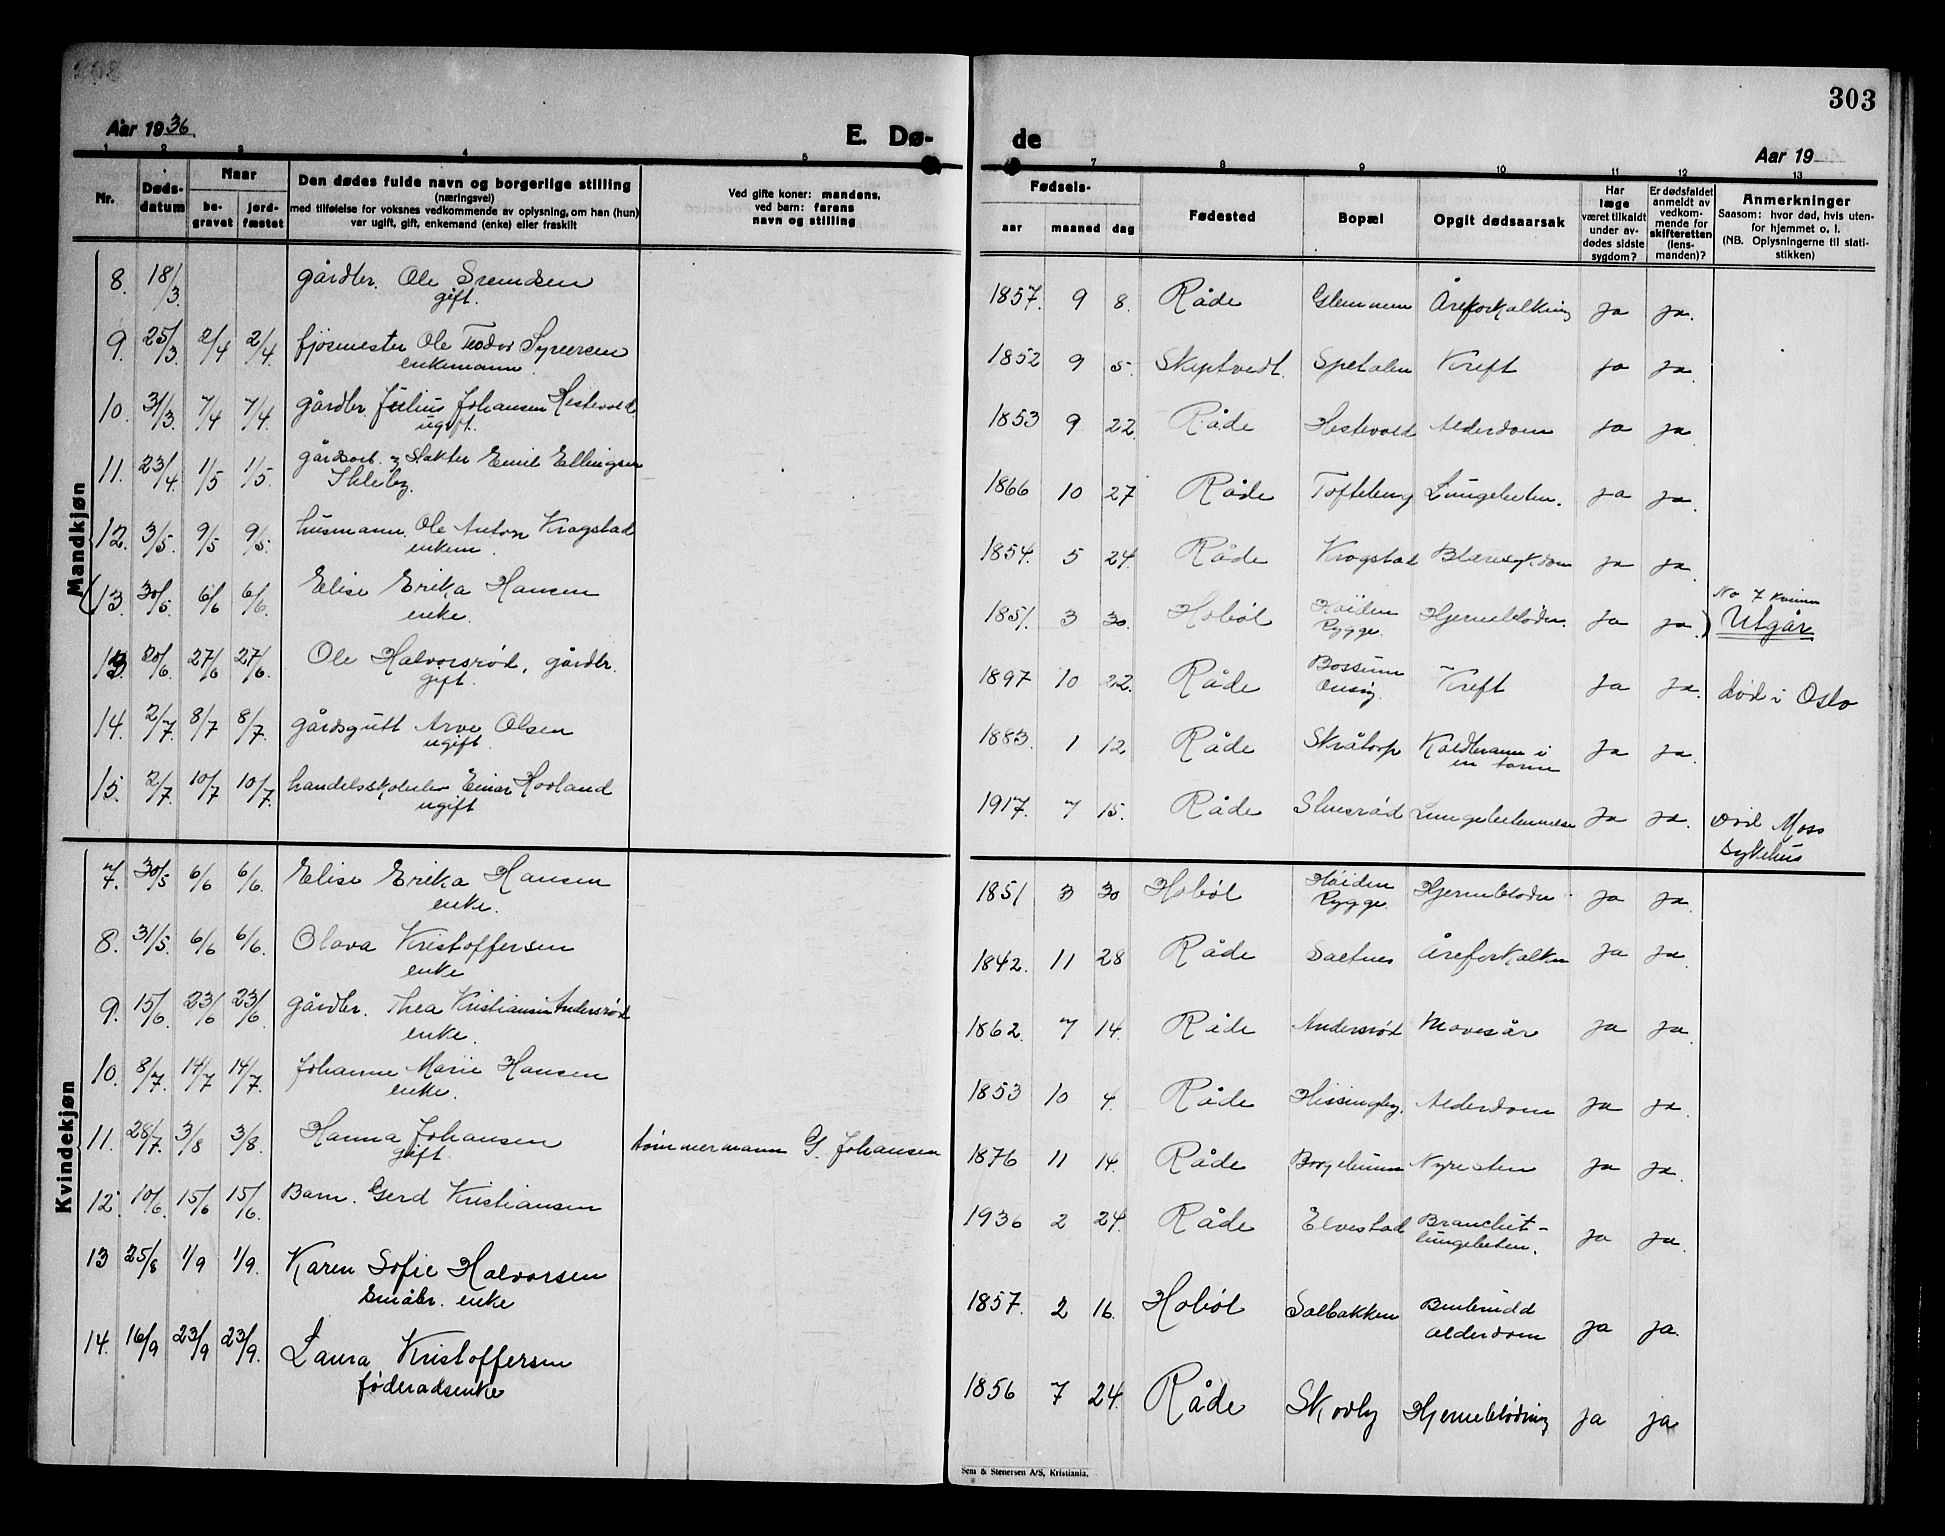 303
Aar 1936.
E. Dø-
de
Aar 19
1 2 3 4 5 7 8 9 10 11 12 13
Nr.
Døds-
datum
Naar
be-
gravet
jord-
fæstet
Den dødes fulde navn og borgerlige stilling
(næringsvei)
med tilføielse for voksnes vedkommende av oplysning, om han (hun)
var ugift, gift, enkemand (enke) eller fraskilt
Ved gifte koner: mandens,
ved barn: farens
navn og stilling
Fødsels-
aar maaned dag
Fødested
Bopæl
Opgit dødsaarsak
Har
læge
været tilkaldt
under av-
dødes sidste
sygdom?
Er dødsfaldet
anmeldt av
vedkom-
mende for
skifteretten
(lens-
manden)?
Anmerkninger
Saasom: hvor død, hvis uten-
for hjemmet o. l.
(NB. Oplysningerne til stati-
stikken)
Mandkjøn
8. 18/3. gårdbr. Ole Svendsen 1857. 9 8. Råde Glemmen Åreforkalkning ja ja.
gift.
9. 25/3 2/4 2/4 fjøsmester Ole Teodor Syversen 1852 9 5. Skiptvedt. Spetalen Kreft ja ja.
enkemann.
10. 31/3. 7/4 7/4. gårdbr. Julius Johansen Hestevold 1853 9 22. Råde Hestevold Alderdom ja ja.
ugift.
11. 23/4. 1/5 1/5. gårdsarb. og slakter Emil Ellingsen 1866 10 27 Råde ja ja.
12. 3/5. 9/5 9/5. husmann Ole Anton Krogstad 1854. 5 24. Råde Krogstad Blæresykdom ja ja.
enkem.
(13. 30/5. 6/6 6/6. Elise Erika Hansen 1851. 3 30. Hobøl Høiden Rygge. ja ja.) No 7 kvinner
enke. Utgår
13. 20/6. 27/6 27/6. Ole Halvorsrød, gårdbr. 1897 10 22. Råde Kreft ja ja. død i Oslo
gift.
14. 2/7. 8/7 8/7. gårdsgutt Arve Olsen 1883. 1 12. Råde Skråtorp Koldbrann i en tarm ja ja.
ugift.
15. 2/7. 10/7 10/7. handelsskoleelev Einar Hovland 1917. 7 15. Råde Lungebetennelse ja ja. død Moss
ugift sykehus
Kvindekjøn
7. 30/5 6/6 6/6. Elise Erika Hansen 1851 3 30 Hobøl Høiden Rygge. ja ja.
enke.
8. 31/5. 6/6 6/6. Olava Kristoffersen 1842. 11 28 Råde Saltnes ja ja.
enke
9. 15/6. 23/6 23/6. gårdbr. Thea Kristiansen Andersrød 1862. 7 14. Råde Andersrød Mavesår ja ja.
enke.
10. 8/7. 14/7 14/7. Johanne Marie Hansen 1853 10 4. Råde Hissingby. Alderdom ja ja.
enke.
11. 28/7. 3/8 3/8. Hanna Johansen tømmermann G. Johansen 1876 11 14. Råde Nyresten ja ja.
gift.
12. 10/6. 15/6 15/6. Barn. Gerd Kristiansen 1936 2 24. Råde Elvestad ja ja.
13 25/8 1/9 1/9. Karen Sofie Halvorsen 1857. 2 16. Hobøl Solbakken Benbrudd alderdom ja ja.
Småbr. enke
14. 16/9 23/9 23/9. Laura Kristoffersen 1856 7 24. Råde Skovby Hjerneblødning ja ja
føderadsenke
Sem & Stenersen A/S, Kristiania.